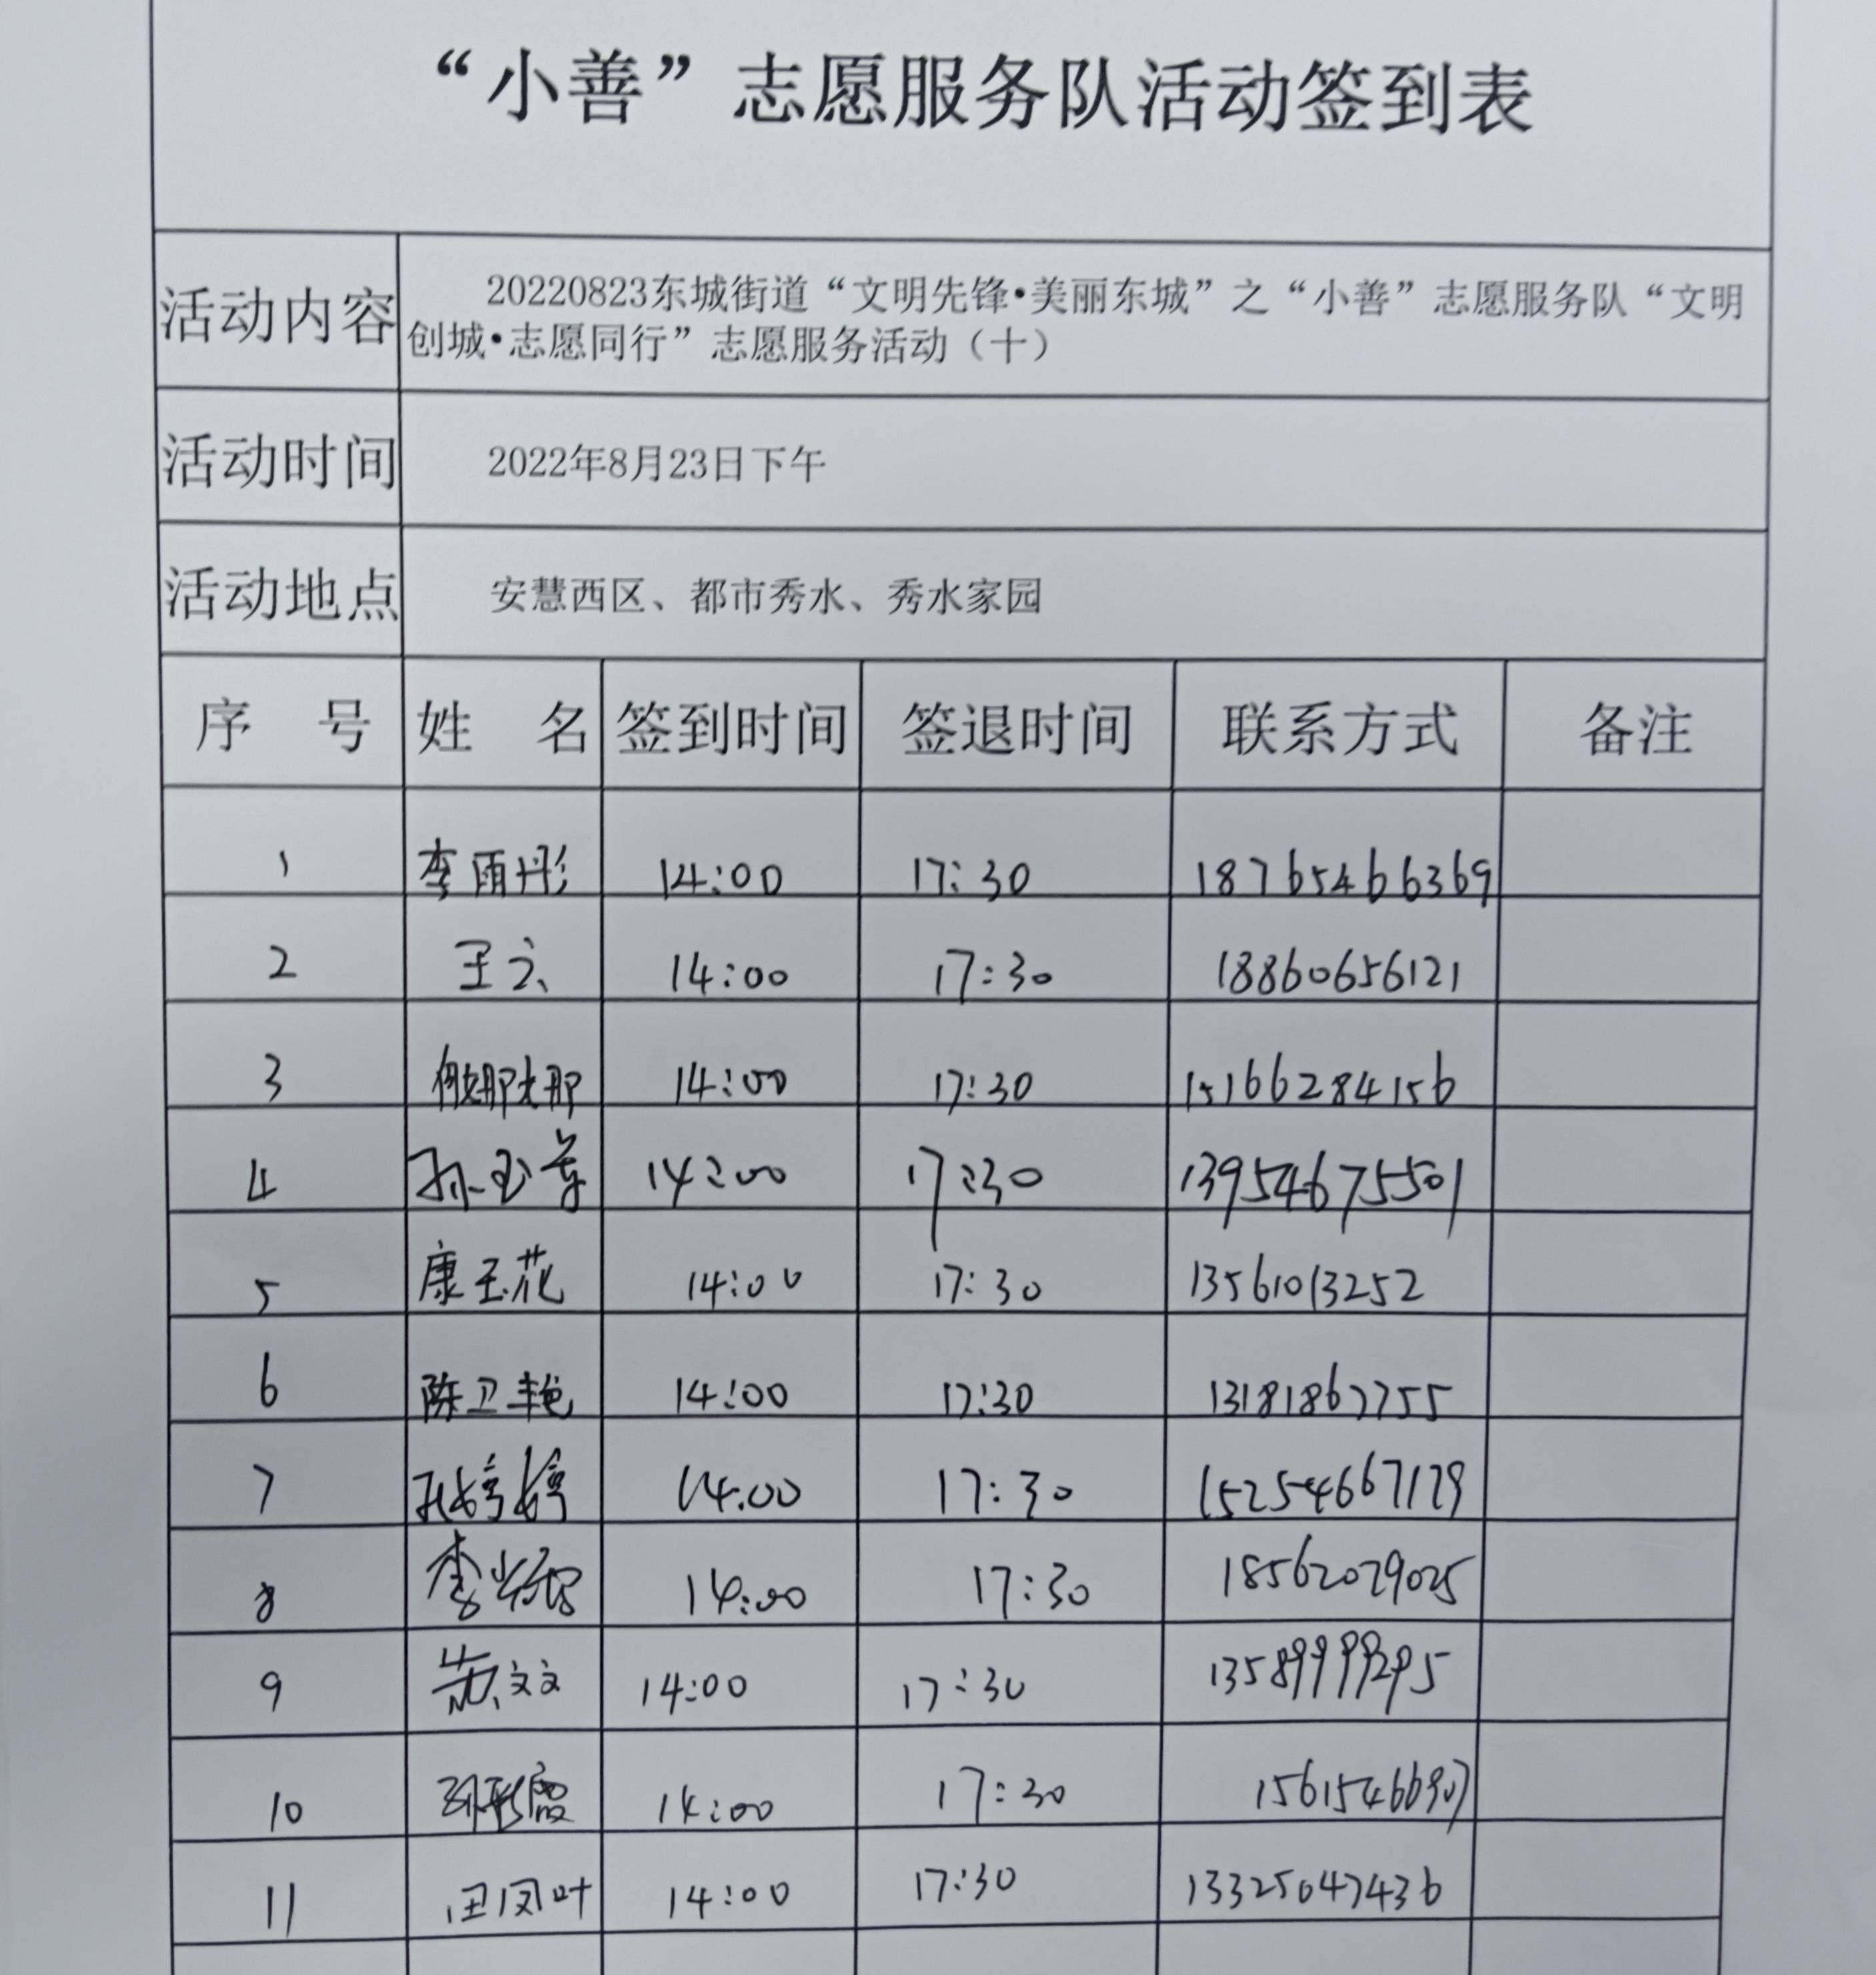 “小善”志愿服务队活动签到表
活动内容 20220823东城街道“文明先锋•美丽东城”之“小善”志愿服务队“文明
创城•志愿同行”志愿服务活动（十）
活动时间 2022年8月23日下午
活动地点 安慧西区、都市秀水、秀水家园
序 号 姓 名 签到时间 签退时间 联系方式 备注
1 李雨彤 14:00 17:30 18765466369
2 王云 14:00 17:30 18860656121
3 14:00 17:30 15166284156
4 孙玉 14:00 17:30 13954675501
5 康玉花 14:00 17:30 13561013252
6 陈卫艳 14:00 17:30 13181867755
7 孔婷婷 14:00 17:30 15254667179
8 李 14:00 17:30 18562079025
9 文文 14:00 17:30
10 孙彤霞 14:00 17:30
11 田凤叶 14:00 17:30 13325047436